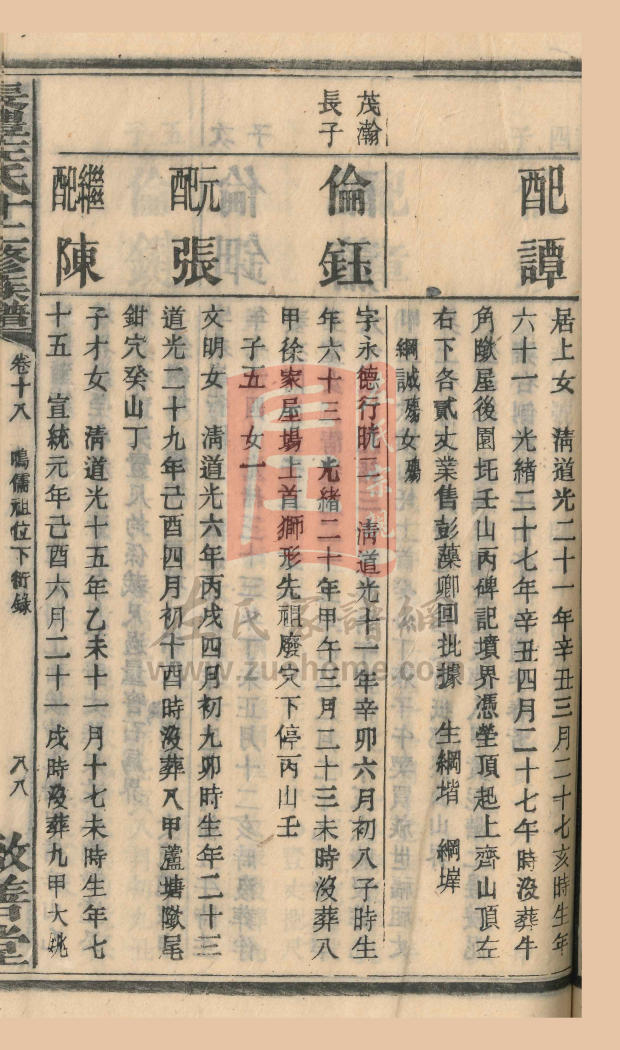 配譚
居上女 清道光二十一年辛丑三月二十七亥時生年
六十一 光緒二十七年辛丑四月二十七午時沒葬牛
角歘屋後園坵壬山丙碑記墳界憑塋頂起上齊山頂左
右下各貳丈業售彭藻卿回批據 生綱堦 綱墀
綱誠殤女殤
茂瀚
長子
倫鈺
字永德行晄三 清道光十一年辛卯六月初八子時生
年六十三 光緒二十年甲午三月二十三未時沒葬八
甲徐家屋場上首獅形先祖廢穴下停丙山壬
子五 女一
元配張
文明女 清道光六年丙戌四月初九卯時生年二十三
道光二十九年己酉四月初十酉時沒葬八甲蘆塘歘尾
鉗穴癸山丁
繼配陳
子才女 清道光十五年乙未十一月十七未時生年七
十五 宣統元年己酉六月二十一戌時沒葬九甲大
長豐左氏十二修族譜
卷十八 鳴儒祖位下衍錄
八八
敦善堂
左氏家譜網
www.zuohome.com